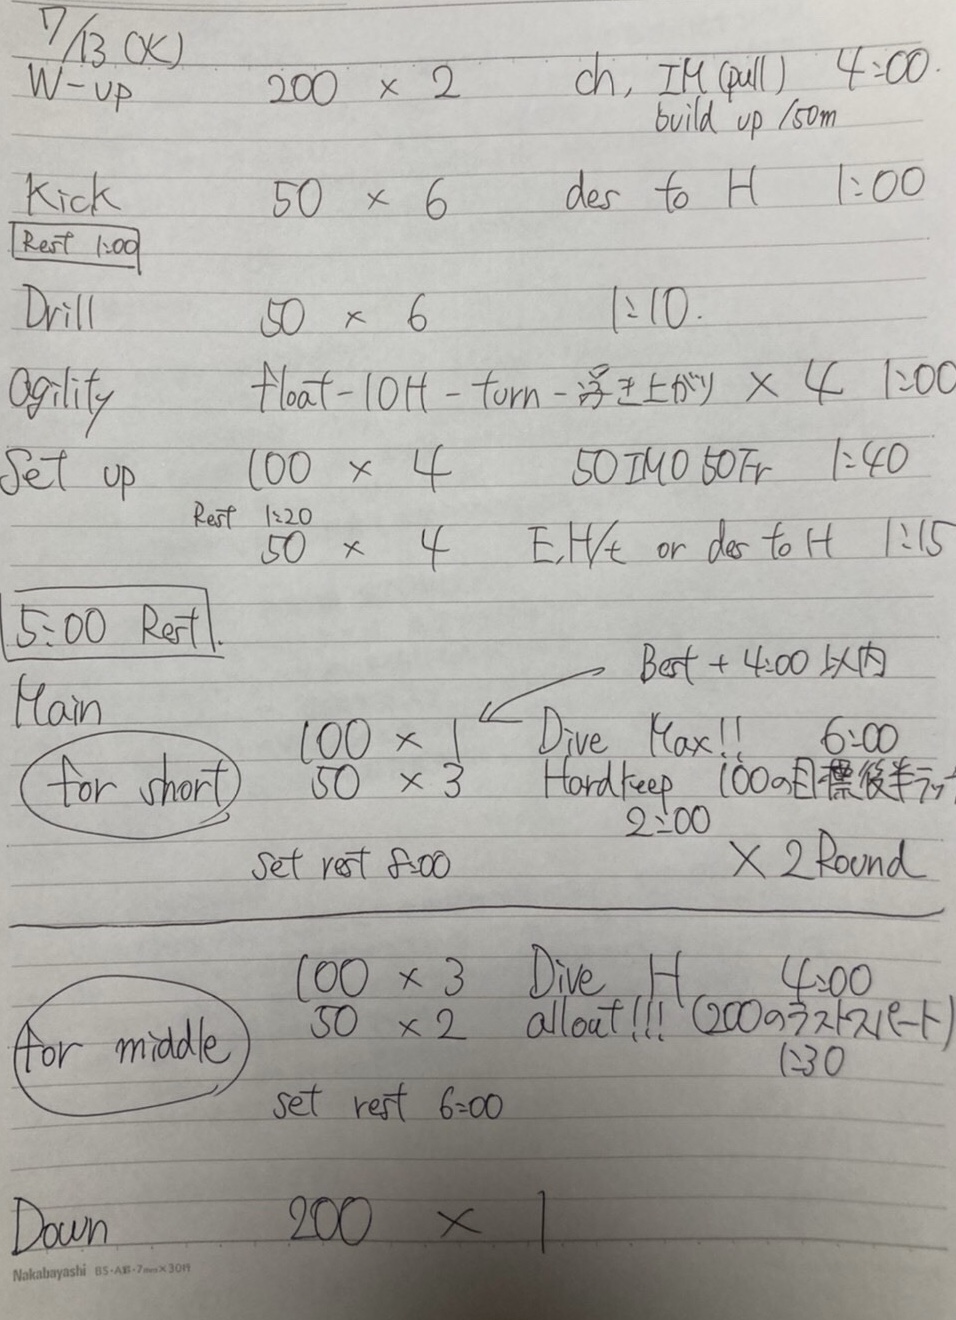 7/13 (火)
W-up 200 × 2 ch, IM (pull) 4:00.
build up /50m
Kick 50 × 6 des to H 1:00
Rest 1:00
Drill 50 × 6 1:10.
agility float-10H-turn-浮き上がり × 4 1:00
Set up 100 × 4 50IMO 50Fr 1:40
Rest 1:20
50 × 4 E,H/t or des to H 1:15
5:00 Rest.
Best + 4:00 以内
Main
100 × 1 Dive Max!! 6:00
for short 50 × 3 Hardkeep 100の目標後半ラッ
2:00
set rest 8:00 × 2 Round
100 × 3 Dive H 4:00
50 × 2 allout!!! (200のラストスパート)
for middle 1:30
set rest 6:00
Down 200 × 1
Nakabayashi